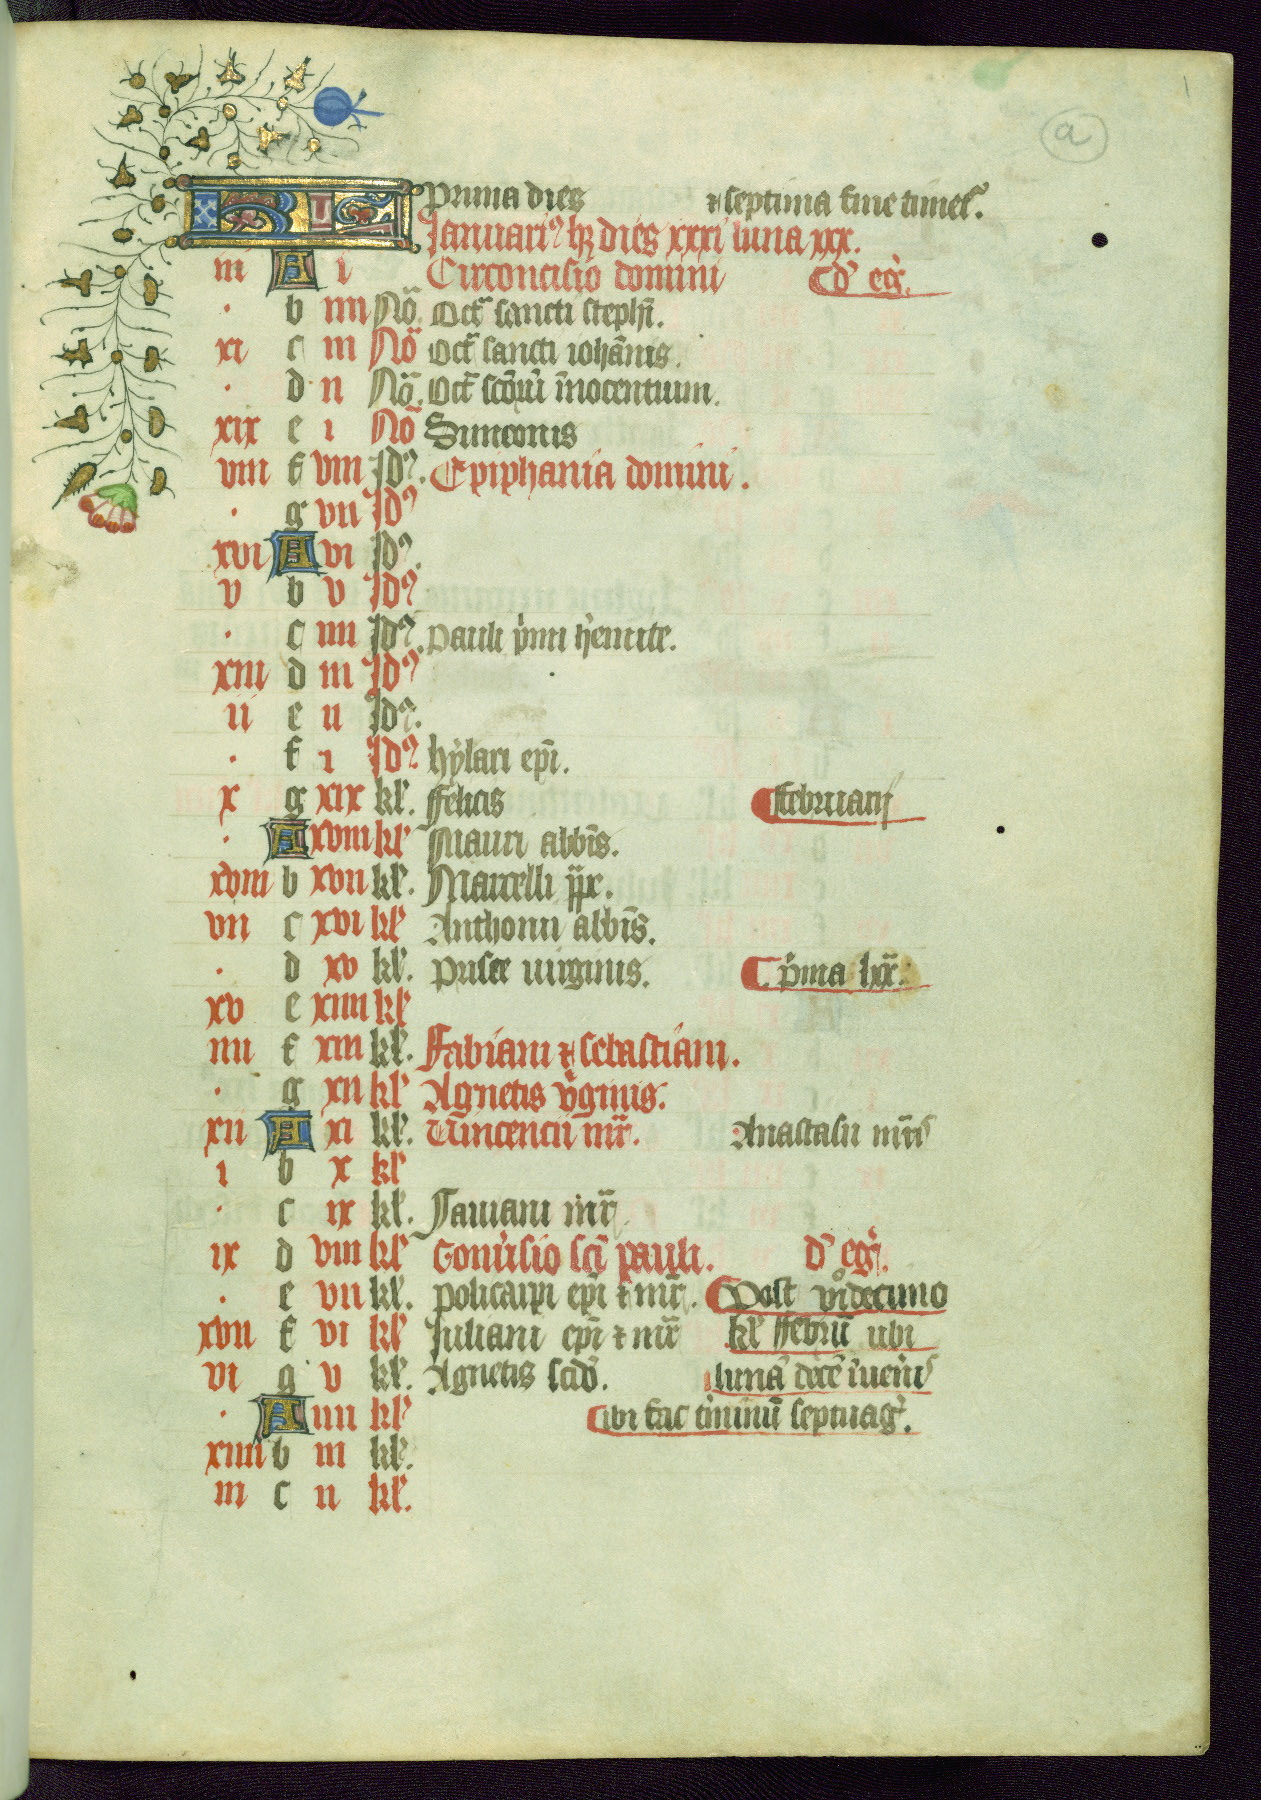 1
a
KL Prima dies et septima fine timet᷒.
Januariꝰ hꝫ dies xxxi luna xxx.
iii A i Circoncisio domini D' eg̾.
. b iiii No᷒. Oct̄ sancti steph̄i.
xi c iii No᷒ Oct̄ sancti iohānis.
. d ii No᷒. Oct̄ sc̄oru̅ i̅nocentium.
xix e i No᷒ Simeonis
viii f viii Idꝰ. Epiphania domini.
. g vii Idꝰ
xvi A vi Idꝰ.
v b v Idꝰ
. c iiii Idꝰ. Pauli p̓mi h̓emite.
xiii d iii Idꝰ
ii e ii Idꝰ.
. f i Idꝰ hẏlari ep̄i.
x g xix kl̓. ffelicis februarij
. A xviii kl̓ Mauri abb̄is.
xviii b xvii kl̓. Marcelli p̄pe.
vii c xvi kl̓ Anthonii abb̄is.
. d xv kl̓. Prisce virginis. p̓ma lxx̄.
xv e xiiii kl̓
iiii f xiii kl̓. Fabiani et sebastiani.
. g xii kl̓ Agnetis v̓ginis.
xii A xi kl̓. Vincencii mr̄. Anastasii mr̄is
i b x kl̓
. c ix kl̓. Sauiani mr̄
ix d viii kl̓ Conu̓sio sc̄i pauli. D' eg̾.
. e vii kl̓. Policarpi ep̄i et mr̄. Post vͦidecimo
xvii f vi kl̓ Juliani ep̄i et mr̄ kl̓ ffebru̅ ubi
vi g v kl̓. Agnetis scd̄o. lunā dece̅ i̅uen̓is
. A iiii kl̓ ibi fac t̓minu̅ septuag̾.
xiiii b iii kl̓.
iii c ii kl̓.